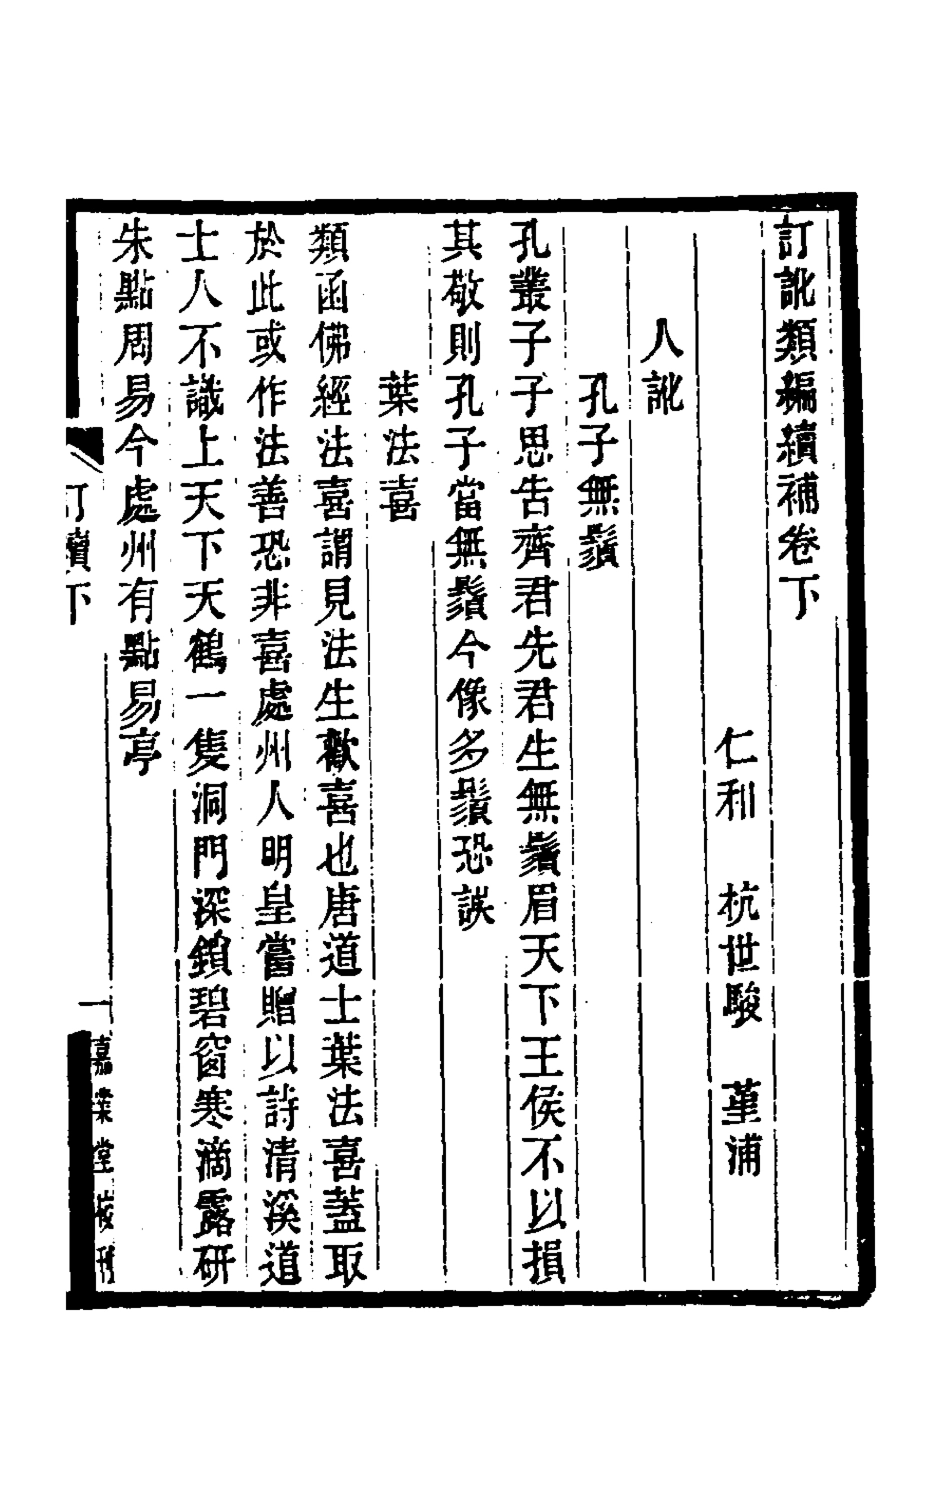 訂訛類編續補卷下
仁和　杭世駿　堇浦
人訛
孔子無鬚
孔叢子子思告齊君先君生無鬚眉天下王侯不以損
其敬則孔子當無鬚今像多鬚恐誤
葉法喜
類函佛經法喜謂見法生歡喜也唐道士葉法喜蓋取
於此或作法善恐非喜處州人明皇嘗贈以詩清溪道
士人不識上天下天鶴一隻洞門深鎖碧窗寒滴露研
朱點周易今處州有點易亭
訂續下
一
嘉業堂校刊